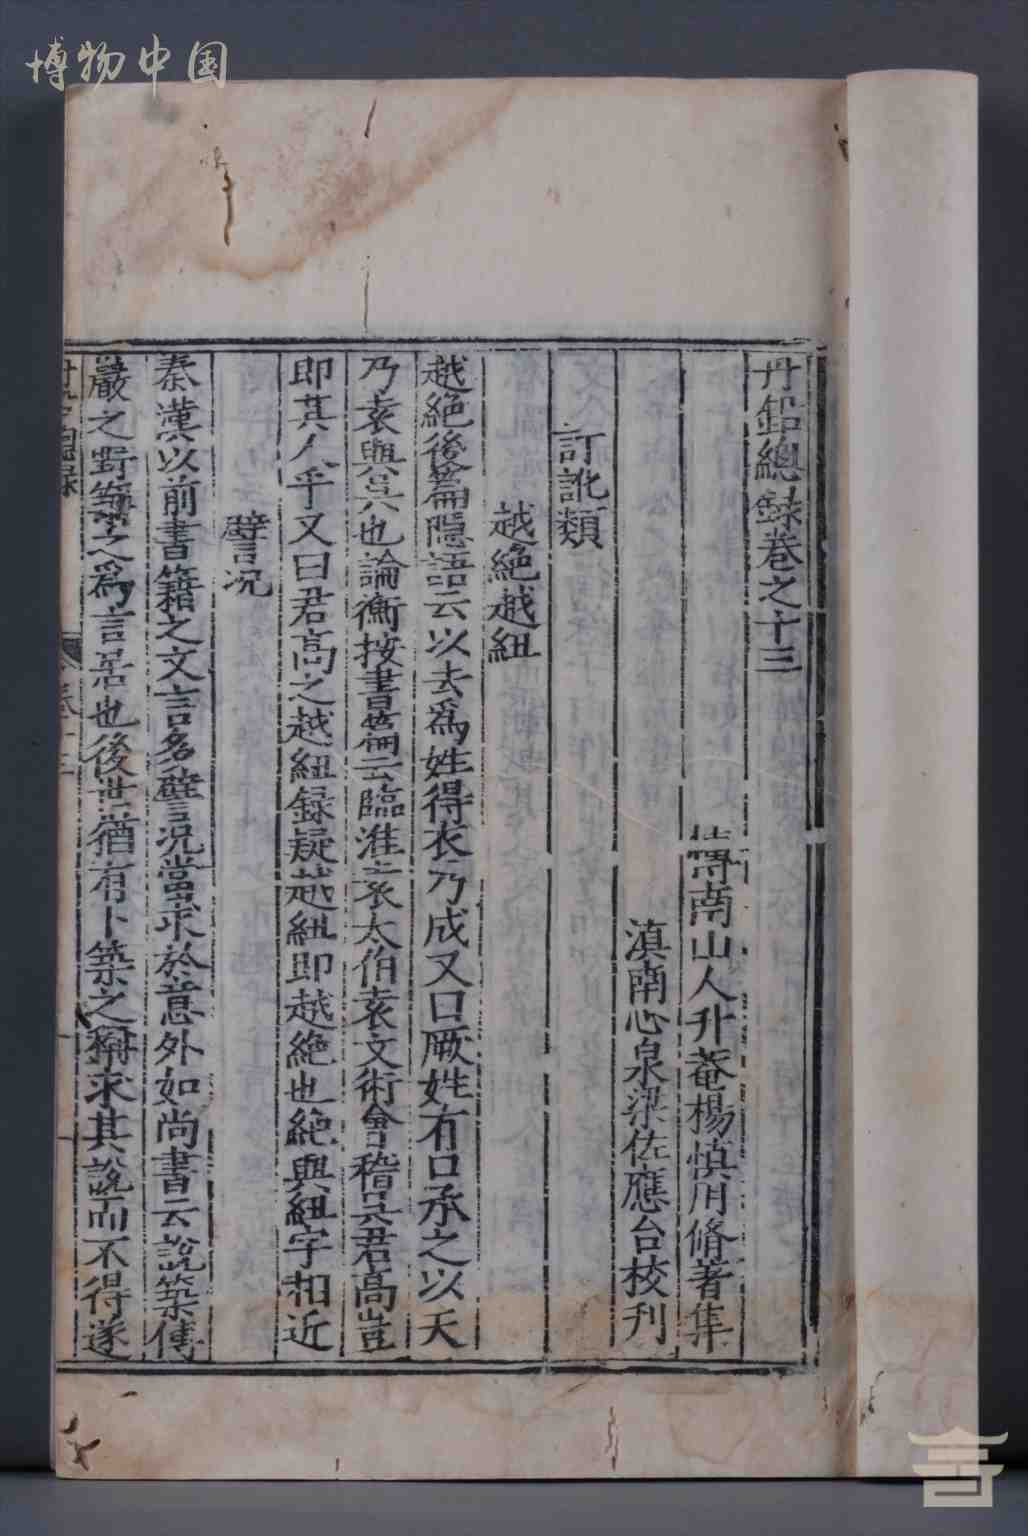 博物中国
丹鉛總錄卷之十三
博南山人升菴楊慎用脩著集
滇南心泉梁佐應台校刊
訂訛類
越絕越紐
越絕後篇隱語云以去爲姓得衣乃成又口厥姓有口承之以天
乃袁與吳也論衡按書篇云臨淮袁太伯袁文術會稽吳君高豈
即其人乎又曰君高之越紐録疑越紐即越絶也絶與紐字相近
譬况
秦漢以前書籍之文言多譬况當求於意外如尚書云說築傅
巖之野築之爲言居也後世猶有卜築之稱求其說而不得遂